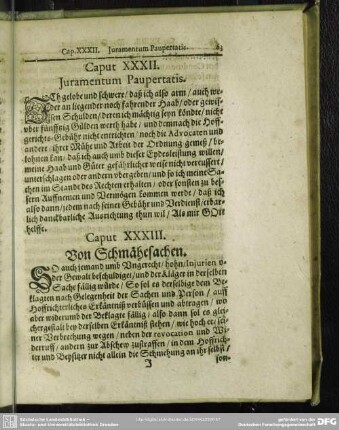 Cap. XXXII. Juramentum Paupertatis.
Caput XXXII.
Juramentum Paupertatis.
Ich gelobe und schwere / daß ich also arm / auch we-
der an liegender noch fahrender Haab / oder gewis-
sen Schulden / deren ich mächtig seyn köndte / nicht
über fünffzig Gülden werth habe / und demnach die Hoff-
gerichts-Gebühr nicht entrichten / noch die Advocaten und
andere / ihrer Mühe und Arbeit der Ordnung gemeß / be-
lohnen kan / daß ich auch umb dieser Eydesleistung willen /
meine Haab und Güter gefährlicher weise nicht veräussert /
unterschlagen oder andern übergeben / und so ich meine Sa-
chen im Stande des Rechten erhalten / oder sonsten zu bes-
sern Auffnemen und Vermögen kommen werde / daß ich
also dann / jedem nach seiner Gebühr und Verdienst / erbar-
lich danckbarliche Ausrichtung thun wil / Als mir GOtt
helffe.
Caput XXXIII.
Von Schmähesachen.
SO auch jemand umb Ungerecht / hohn / Injurien o-
der Gewalt beschuldiget / und der Kläger in derselben
Sache fällig würde / So sol es derselbige dem Be-
klagten nach Gelegenheit der Sachen und Person / auff
Hoffrichterliches Erkäntniß verbüssen und abtragen / wo
aber widerumb der Beklagte fällig / also dann sol es glei-
chergestalt bey derselben Erkäntniß stehen / wie hoch er / sei-
ner Verbrechung wegen / neben der revocation und Wi-
derruff / andern zur Abschew zustraffen / in dem Hoffrich-
ter und Beysitzer nicht allein die Schmehung an ihr selbst /
J
son-